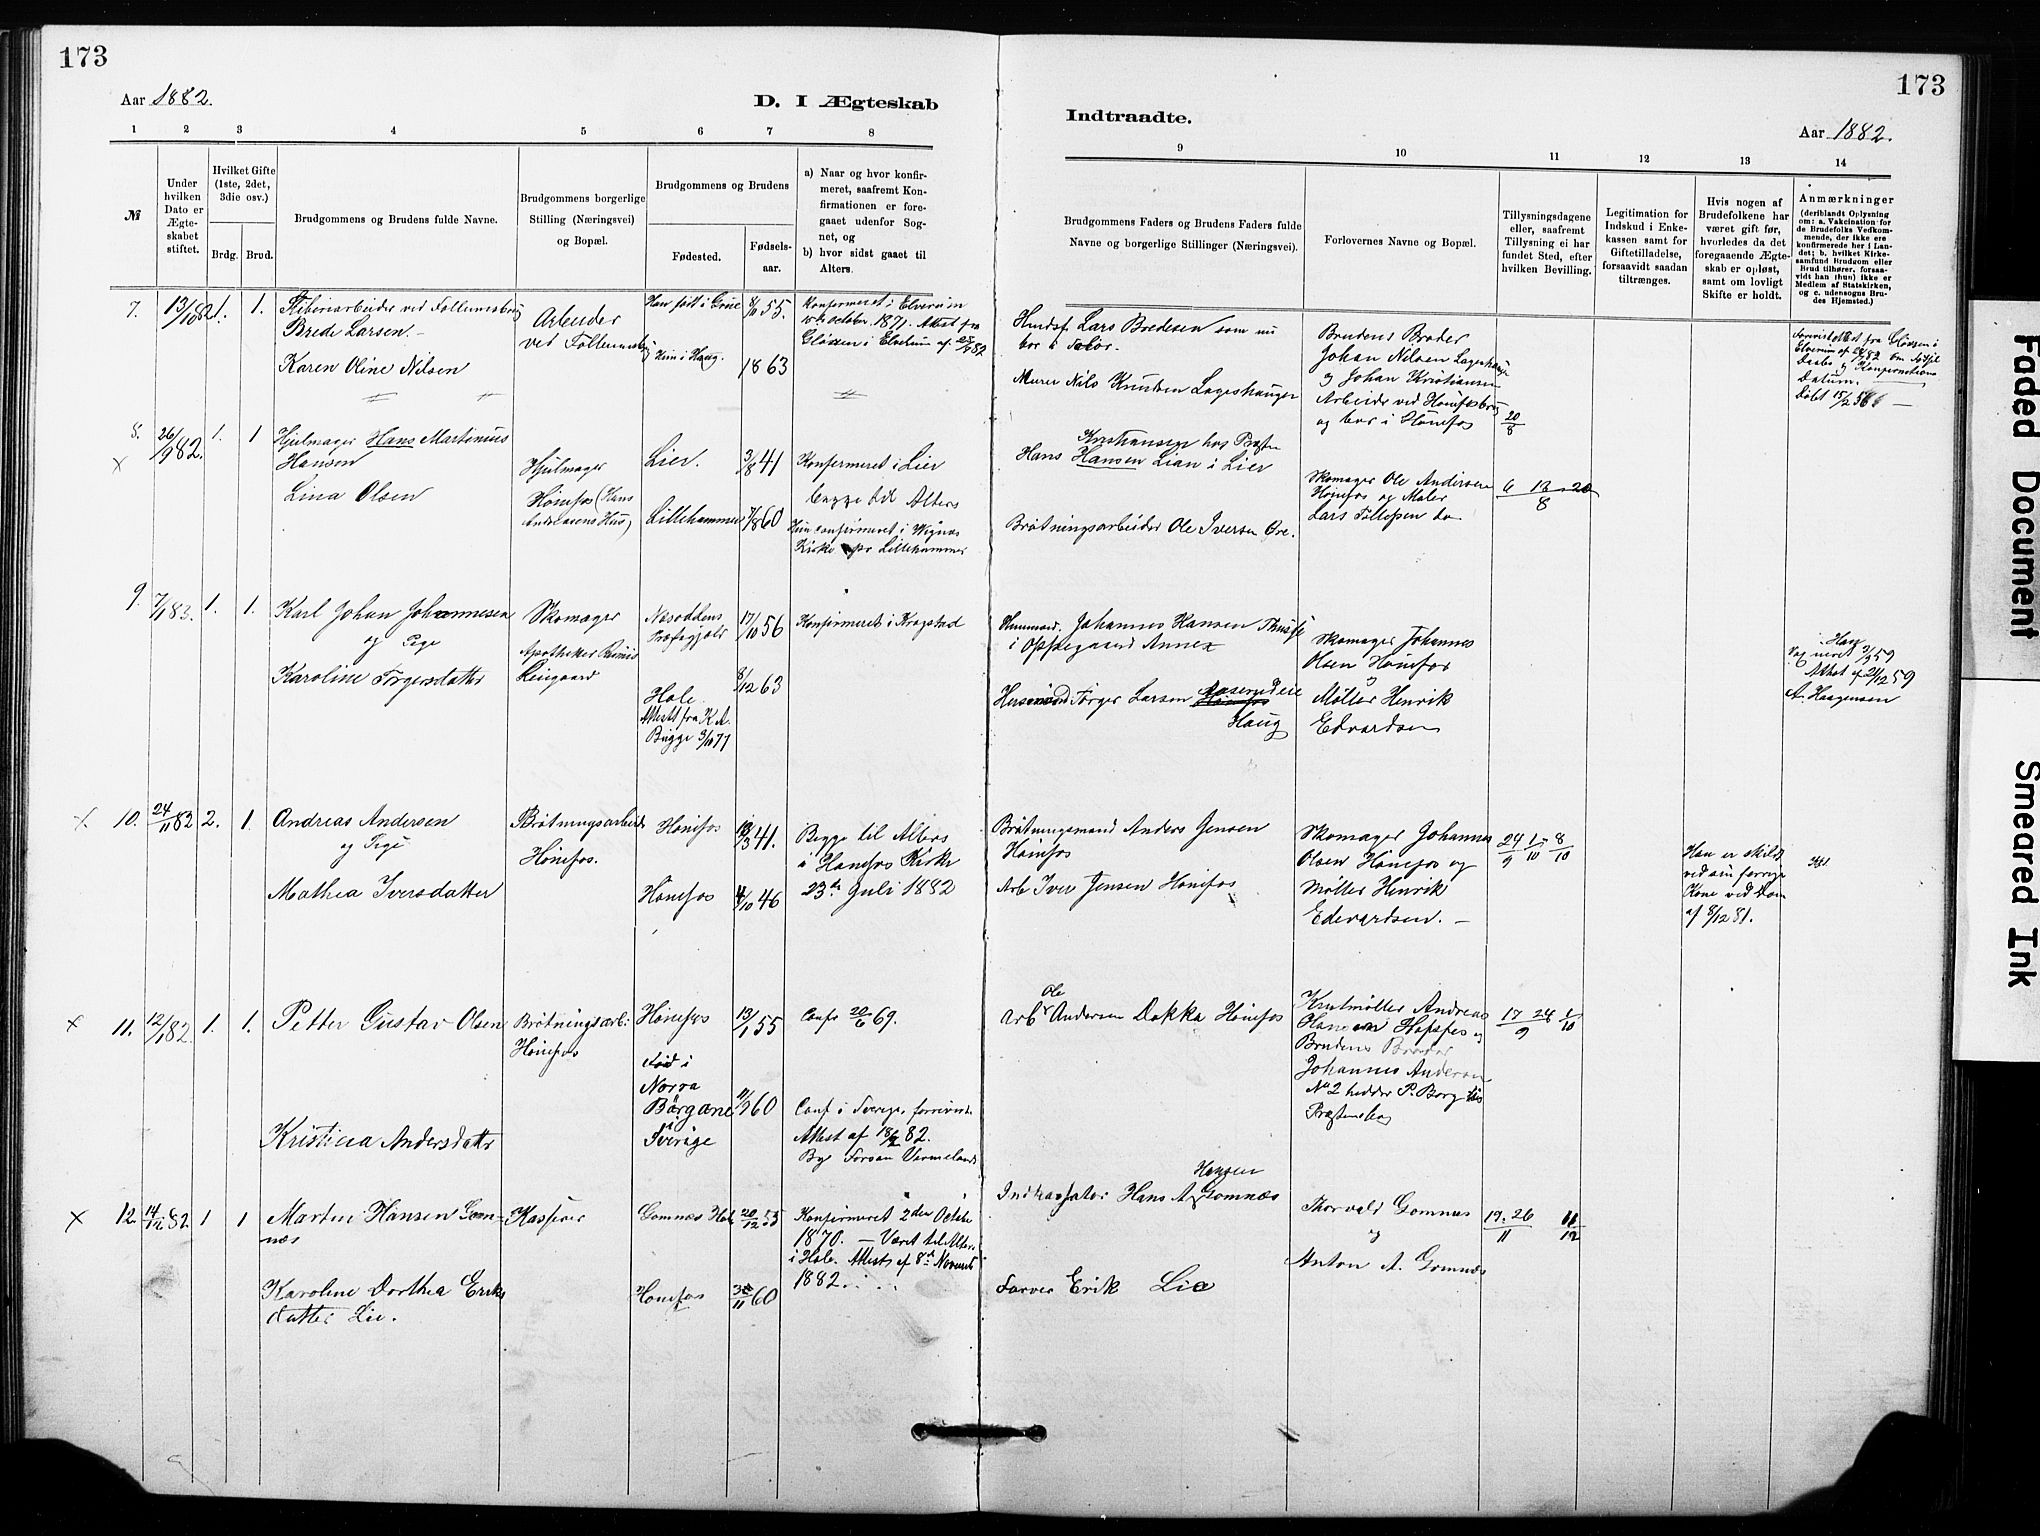 173
Aar 1882.
D. I Ægteskab
1 2 3 4 5 6 7 8
№
Under hvilken Dato er Ægte-skabet stiftet.
Hvilket Gifte (1ste, 2det, 3die osv.)
Brdg. Brud.
Brudgommens og Brudens fulde Navne.
Brudgommens borgerlige Stilling (Næringsvei) og Bopæl.
Brudgommens og Brudens
Fødested.
Fødsels-aar.
a) Naar og hvor konfir-meret, saafremt Kon-firmationen er fore-gaaet udenfor Sog-net, og
b) hvor sidst gaaet til Alters.
7. 13/10 82 1. 1.
Brede Larsen.
Karen Oline Nilsen
Arbeider
ved
Han født i Grue
Hun i Haug.
8/10 55.
18 63
Konfirmeret i Elverum
October 1871. Attest fra
Elverum af
8. 26/9 82. 1. 1
Hjulmager Hans Martinius
Hansen
Lina Olsen
Hjulmager
Hønefos (Hans
Andersens Hus)
Lier.
Lillehammer
3/8 41
7/8 60
Konfirmeret i Lier
begge til Alters
Hun confirmeret i
Kirke pr Lillehammer
9. 7/1 83. 1. 1.
Karl Johan Johannesen
og Pige
Karoline Torgersdatter
Skomager
Apotheker
Næsoddens
Præstegjæld
Hole.
Attest fra K. A.
Bugge 3/10 77
17/10 56
8/12 63
Konfirmeret i Kragstad
10. 24/11 82 2. 1.
Andreas Andersen
og Pige
Mathea Iversdatter
Brötningsarbeid
Hønefos.
Hønefos
Hønefos
18/3 41.
4/10 46
Begge til Alters
i Hønefos Kirke
23de Juli 1882
11. 12/1 82 1. 1.
Petter Gustav Olsen
Kristina Andersdatter
Brötningsarb:
Hønefos
Hønefos
Fød i
Norra
i
Sverige
13/1 55
11/9 60
Conf 20/6 69.
Conf i Sverige, forevist
Attest af 18/9 82.
12. 14/12 82. 1 1
Marten Hansen Gom-
næs
Karoline Dorthea Eriks
datter Lie.
Kasserer
Gomnæs Hole
Hønefos
20/12 55
30/11 60
Konfirmeret 2den Octobr
1870. — Været til Alters
i Hole. Attest af 8de Novemb
1882
173
Indtraadte.
Aar 1882.
9 10 11 12 13 14
Brudgommens Faders og Brudens Faders fulde Navne og borgerlige Stillinger (Næringsvei).
Forlovernes Navne og Bopæl.
Tillysningsdagene eller, saafremt Tillysning ei har fundet Sted, efter hvilken Bevilling.
Legitimation for Indskud i Enke-kassen samt for Giftetilladelse, forsaavidt saadan tiltrænges.
Hvis nogen af Brudefolkene har været gift før, hvorledes da det foregaaende Ægte-skab er opløst, samt om lovligt Skifte er holdt.
Anmærkninger
(deriblandt Oplysning om: a. Vakcination for de Brudefolks Vedkom-mende, der ikke ere konfirmerede her i Lan-det; b. hvilket Kirke-samfund Brudgom eller Brud tilhører, forsaa-vidt han (hun) ikke er Medlem af Statskirken, og c. udensogns Bru-des Hjemsted.)
Husf. Lars Bredesen som nu
bor i
Murer Nils Knudsen Lageshaugen
Brudens Broder
Johan Nilsen
og Johan Kristiansen
Arbeider ved Hønefosbrug
og bor i Hønefos
20/8
Elverum af
Datum.
Døbt 15/2 56
Kristiansen hos Præsten
Hans Hansen Lian i Lier
Brötningsarbeider Ole Iversen Øre.
Skomager Ole Andersen
Hønefos og Maler
Lars Tollefsen do
6 13 20/8
Johannes Hansen
i Oppegaard Annex
Husmand Torger Larsen Aaserudeie
Haug
Skomager Johannes
Olsen Hønefos
og
Møller Henrik
Edvardsen
Haug
Vaccineret 3/9 59
Attest af 21/12 59
A. Haagensen
Brötningsmand Anders Jensen
Hønefos
Arb Iver Jensen Hønefos
Skomager Johannes
Olsen Hønefos og
Møller Henrik
Edevardsen. —
24/9 1/10 8/10
Han er skildt
ved sin forrige
Kone ved Dom
af 8/12 81.
Ole
Arb Andersen Dokka Hønefos
Møller Andreas
Brudens Broder
Johannes Andersen
No 2 hedder P. Borg
17 24/9 1/10
Hansen
Hans A Gomnæs
Farver Erik Lie
Thorvald Gomnæs
og
Anton A. Gomnæs
19. 26/11
Faded Document
Smeared Ink